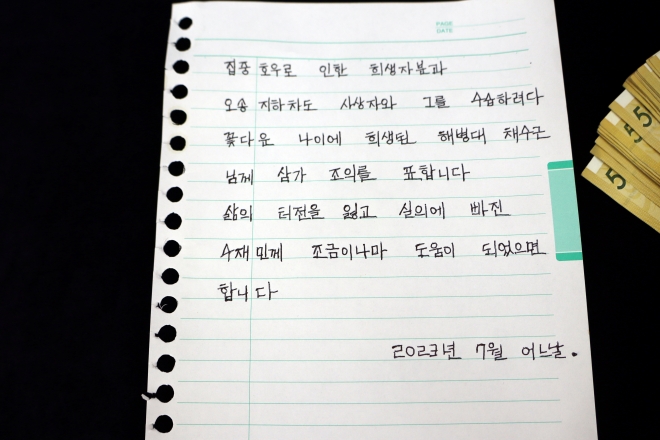 PAGE
DATE
집중 호우로 인한 희생자분과
오송 지하차도 사상자와 그를 수습하려다
꽃다운 나이에 희생된 해병대 채수근
님께 삼가 조의를 표합니다
삶의 터전을 잃고 실의에 빠진
수재민께 조금이나마 도움이 되었으면
합니다
2023년 7월 어느날.
5
5